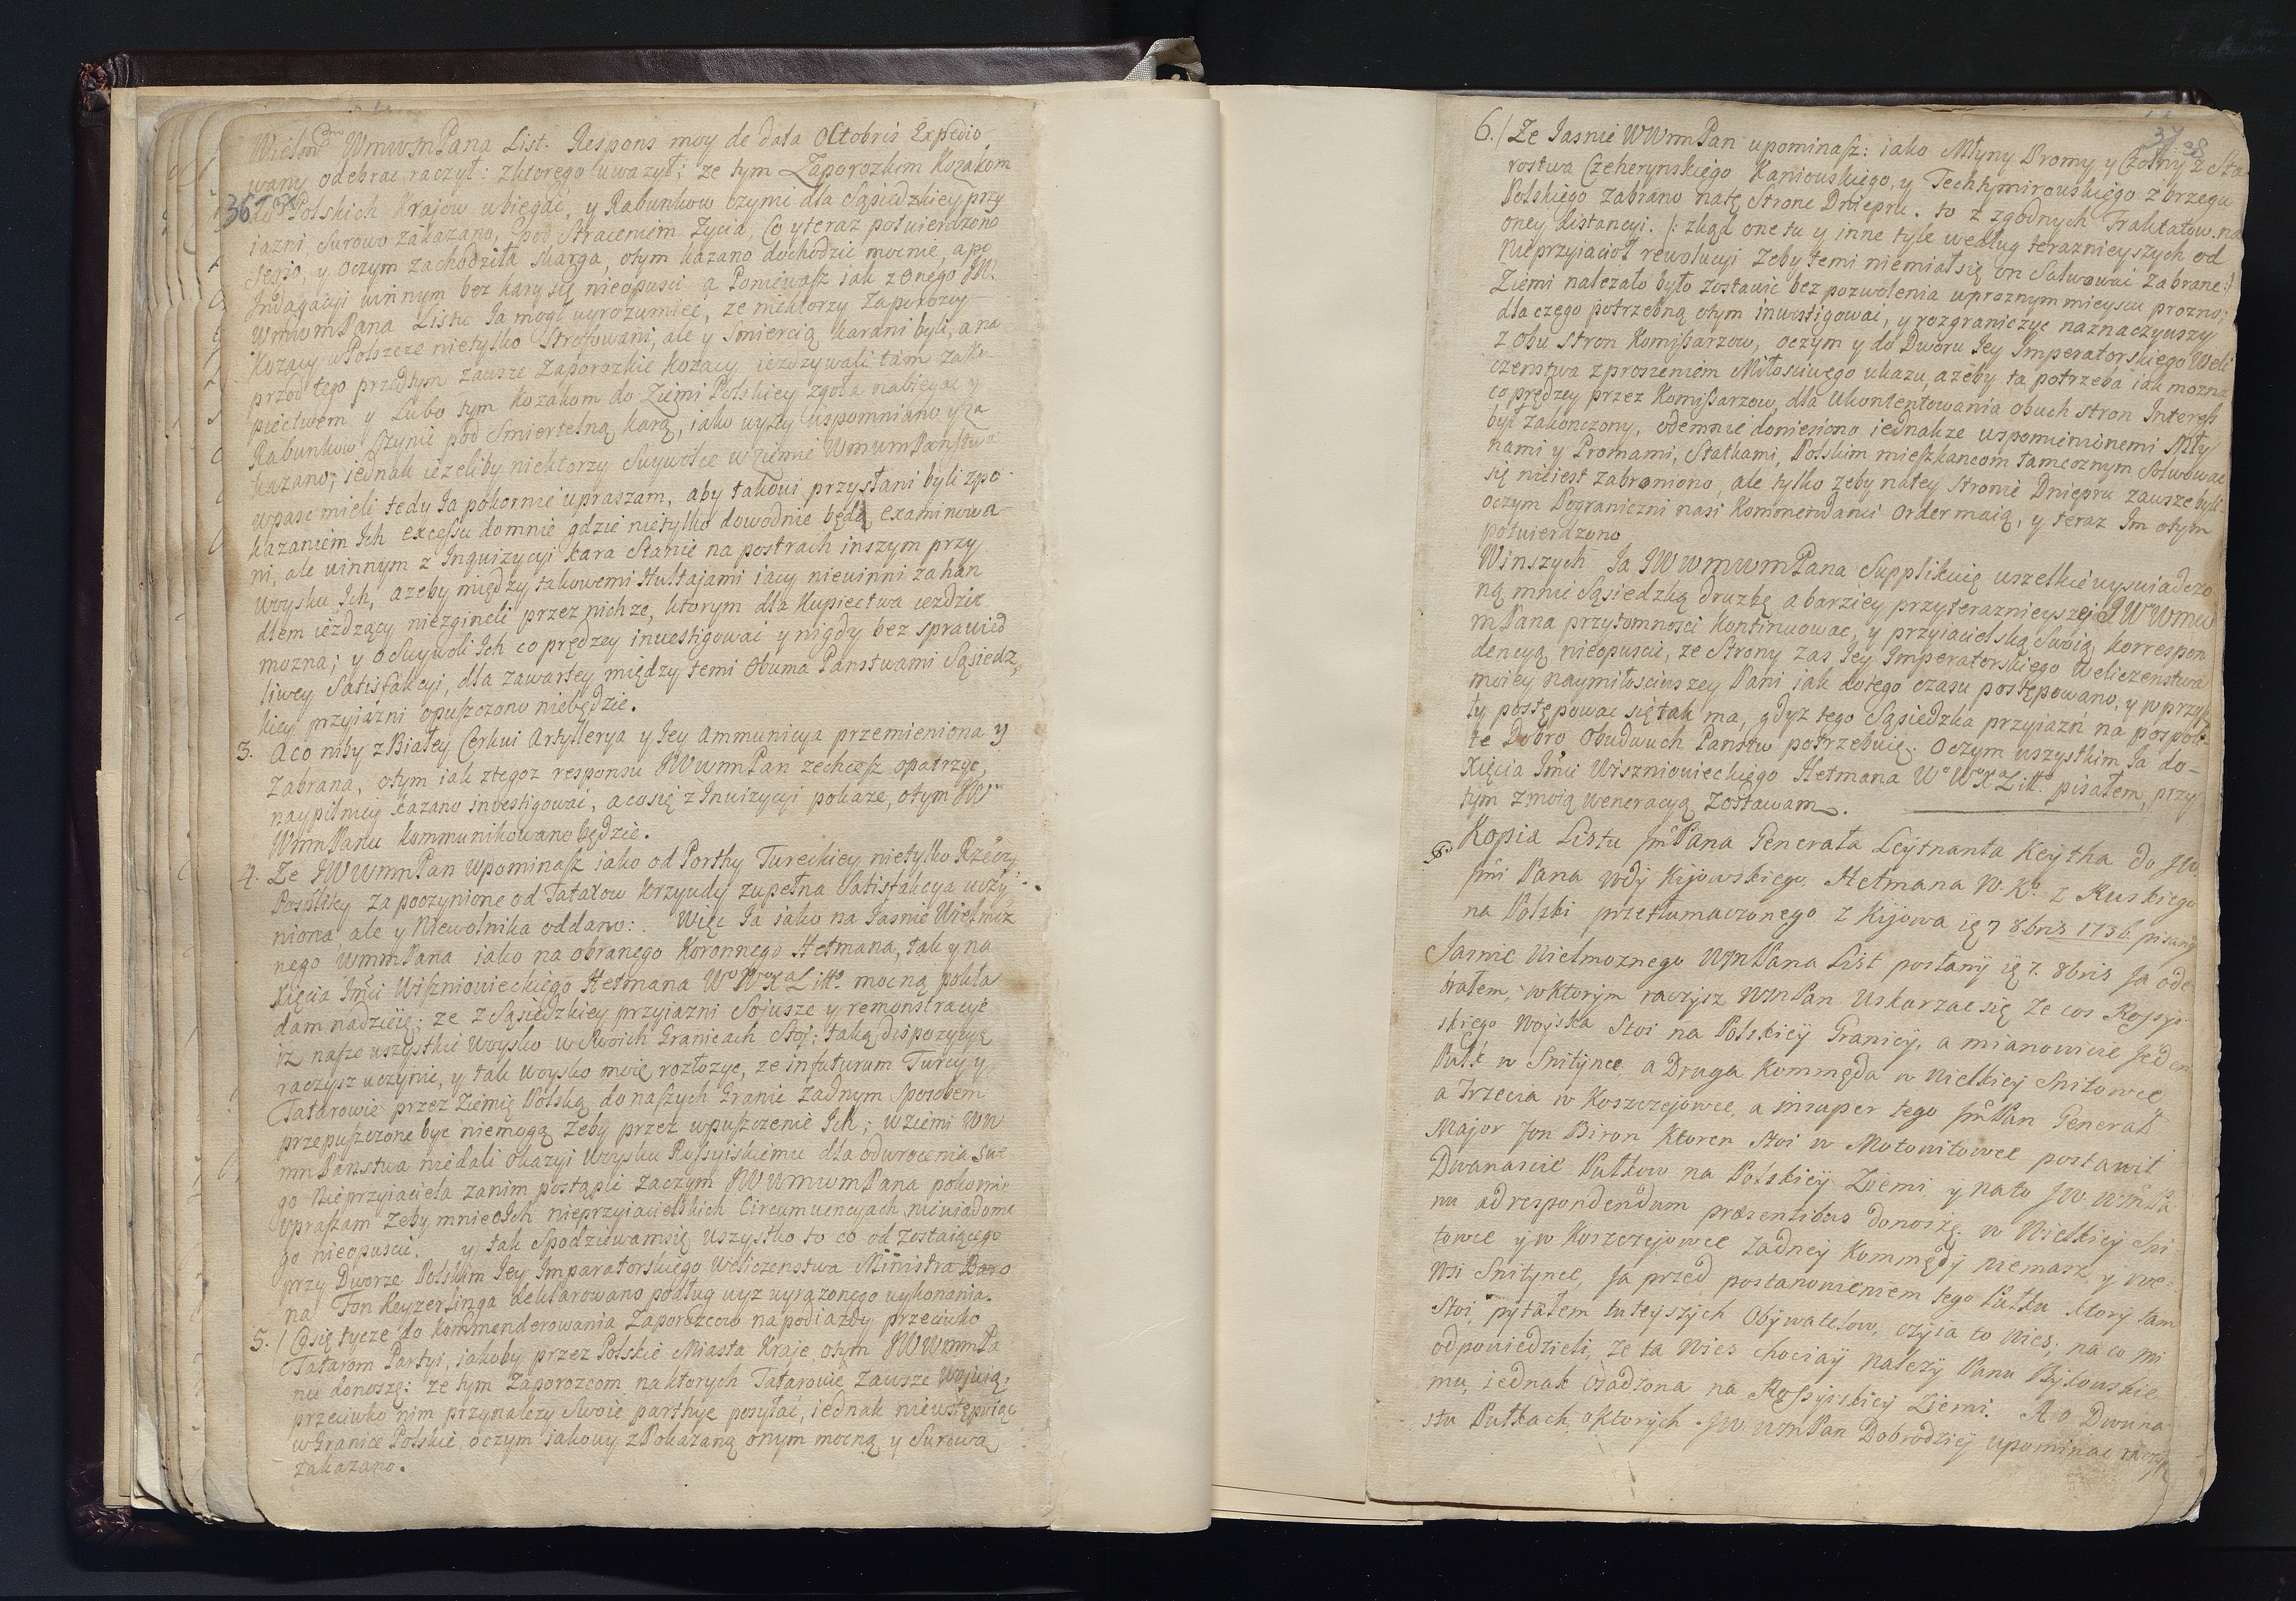 Wielm WmwmPana List. Respons moy de data Octobris Expedio
wany odebrac raczył: zktorego uwazył; ze tym Zaporozkim Kozakom
367 do Polskich Krajow ubiegać, y Rabunkow czynić dla Sąsiedzkiey przy
iazni, Surowo zakazano, pod Straceniem Zycia, Co yteraz potwierdzono
Jesio, y oczym zachodziła skarga, otym kazano dochodzić mocnie, apo
Indagacyi winnym bez kary się nieopusci a Poniewasz iak z onego JW.
WmwmPana Listu Ja mogł wyrozumieć, ze niektorzy Zaporozcy
Kozacy wPolszcze nietylko Strofowani, ale y Smiercią karani byli, a na
przod tego przedtym zawsze Zaporozkie Kozacy iezdzywali tam zaku-
piectwem y Lubo tym Kozakom do Ziemi Polskiey zgoła nabiegac y
Rabunkow Czynić pod Smiertelną karą, iako wyzy wspomniano yza
kazano; iednak iezeliby niektorzy Swywolce wziemie WmwmPanstwa
wpasc mieli tedy Ja pokornie upraszam, aby takowi przysłani byli zpo-
kazaniem Ich excessu domnie gdzie nietylko dowodnie będą examinowa-
ni, ale winnym z Inquizycyi kara Stanie na postrach inszym przy
woysku Ich, azeby między takowemi Hultajami iacy niewinni za han
dlem iezdzący niezgineli przez nichze, ktorym dla Kupiectwa iezdzic
mozna; y o Swywoli Ich co prędzey inwestigować y nigdy bez sprawied
liwey Satisfakcyi, dla zawartey między temi obuma Panstwami Sąsiedz
kiey przyiazni opuszczono niebędzie.
3. A co niby z Białey Cerkwi Artyllerya y Jey Ammunicya przemieniona y
Zabrana, otym iak ztegoz responsu JWwmPan zechcesz opatrzyc,
naypilniey kazano inwestigować, acosię z Inwizycyi pokaze, otym JW
WmmPanu kommunikowano będzie.
4. Ze JWWmmPan wpominasz iako od Porthy Tureckiey nietylko Rzeczy
Pospltey za poczynione od Tatarow krzywdy zupełna Satisfakcya uczy
niona, ale y Niewolnika oddano: Więc Ja iako na Jasnie Wielmoz
nego WmmPana iako na obranego Koronnego Hetmana, tak y na
Xięcia Jmci Wiszniowieckiego Hetmana Wo WoXa Litto. mocną pokła
dam nadzieię; ze z Sąsiedzkiey przyiazni Sojusze y remonstracyie
iz nasze wszystkie woysko wSwoich Granicach Stoj: taką dispozycyą
raczysz uczynic, y tak woysko moię rozłozyc, ze infuturum Turcy y
Tatarowie przez Ziemię Polską donaszych Granic zadnym Sposobem
przepuszczone byc niemogą zeby przez wpuszczenie Ich; wziemi WW
mmPanstwa niedali okazyi woysku Rossyiskiemu dla odwrocenia Swe
go nieprzyiaciela zanim postąpic zaczym JWWmwmPana pokornie
upraszam zeby mnie oIch nieprzyiacielskich Circumwencyjach niewiadome
go nieopuscic. y tak Spodziewamsię wszystko to co od Zostaiącego
przy Dworze Polskim Jey Imparatorskiego Weliczenstwa Ministra Baro
na Fon Keyzerlinga deklarowano podług wyz wyrazonego wykonania.
5. Cosię tycze do kommenderowania Zaporozcow napodiazdy przeciwko
Tatarom Partyi, jakoby przez Polskie Miasta Kraje, otym JWWmmPa
nu donoszę: ze tym Zaporozcom na ktorych Tatarowie zawsze woiuią,
przeciwko nim przynalezy Swoie parthyje posyłac, iednak niewstępuiąc
wGranice Polskie, oczym iakowy zPokazaną onym mocną y Surową
zakazano.
37 28
6. Ze Jasnie WWmPan upominasz: iako Młyny Promy y Czołny z Sta
rostwa Czeherynskiego Kaniowskiego, y Techtymirowskiego z brzegu
Polskiego zabrano natę Strone Dniepru. to z zgodnych Traktatow na
oney distancyi. /: zkąd one tu y inne tyle według teraznieyszych od
Nieprzyiacioł rewolucyi Zeby temi niemiałsię on Salwować Zabrane :/
Ziemi nalezało było zostawic bez pozwolenia uproznym mieyscu prozno;
dla czego potrzebną otym inwestigować, y rozgraniczyc naznaczywszy
z obu Stron Komissarzow, oczym y do Dworu Jey Imperatorskiego Weli
czenstwa zproszeniem Miłosciwego ukazu, azeby ta potrzeba iak mozna
co prędzey przez Komissarzow, dla Ukontentowania obuch stron Interess
był zakonczony, odemnie doniesiono iednakze wspomienionemi Mły
nami y Promami, Statkami, Polskim mieszkancom tamecznym Salwowac
się nieiest zabroniono, ale tylko zeby natey Stronie Dniepru zawsze byli
oczym Pograniczni nasi Kommendanci Order maią, y teraz Im otym
potwierdzono
Winszych Ja JWWmwmPana Supplikuię wszelkie wyswiadczo
ną mnie Sąsiedzką druzbę a barziey przyteraznieyszei JWWmw
mPana przytomnosci kontinuowac, y przyiacielską Swoią korrespon
dencyą nieopuscic, ze Strony zas Jey Imperatorskiego Weliczenstwa
moiey naymiłosciwszey Pani iak dotego czasu postępowano, y wprzysz
ły postępowac się tak ma, gdyz tego Sąsiedzka przyiazń na pospoli-
te Dobro obudwuch Panstw potrzebuię. Oczym wszystkim Ja do-
Xięcia Jmci Wiszniowieckiego Hetmana Wo WoXa Litto. pisałem, przy
tym zmoią weneracyą zostawam.
Kopia Listu Jmć Pana Generała Leytnanta Keytha do JW.
Jmci Pana Wdy Kijowskiego Hetmana W. Ko. z Ruskiego
na Polski przetłumaczonego z Kijowa ię 7 8bris 1736. pisany
Jasnie Wielmoznego WmPana List posłany ię 7. 8bris Ja ode
brałem, wktorym raczysz WmPan Uskarzac się ze cos Rossyi
skiego Woyska Stoi na Polskiey Granicy, a mianowicie Jeden
Pułk w Snitynce, a Druga Kommęda w Wielkiey Snitowce
a Trzecia w Koszczejowce, a insuper tego Jmć Pan Generał
Major Fon Biron ktoren Stoi w Motowitowce postawił
Dwanascie Pułkow na Polskiey Ziemi y nato JW. WmPa
nu adrespondendum praesentibus donoszę. w Wielkiey Sni
towce y w Koszczejowce zadney Kommędy niemasz, y we
Wsi Snitynce, Ja przed postanowieniem tego Pułku ktory tam
Stoi, pytałem tuteyszych Obywatelow, czyia to Wies; na co mi
odpowiedzieli, ze ta Wies chociay nalezy Panu Bykowskie
mu, iednak osadzona na Rossyiskiey Ziemi. A o Dwuna
stu Pułkach, oktorych JW. WmPan Dobrodziey upominac raczysz